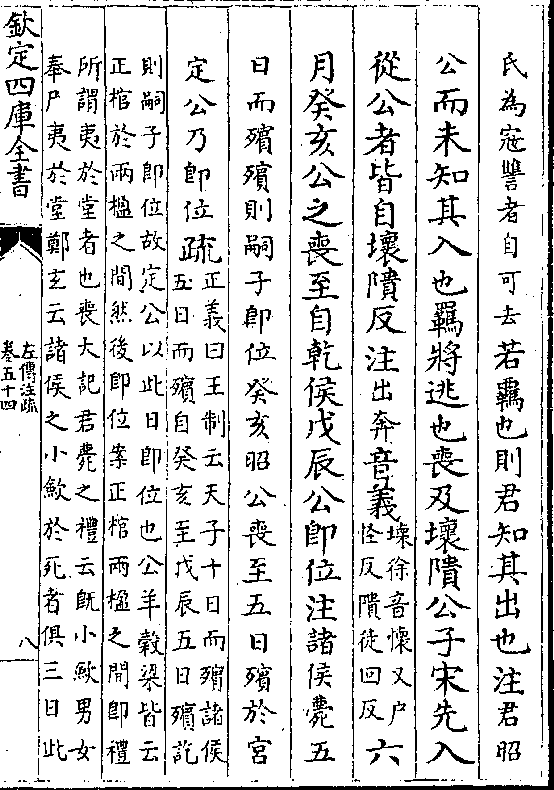 氏為寇讐者自可去若羈也則君知其出也注君昭
公而未知其入也羈將逃也喪及壞隤公子宋先入
從公者皆自壞隤反注出奔音義壞徐音懷又戶
怪反隤徒回反六
月癸亥公之喪至自乾侯戊辰公即位注諸侯薨五
日而殯殯則嗣子即位癸亥昭公喪至五日殯於宮
定公乃即位疏正義曰王制云天子十日而殯諸侯
五日而殯自癸亥至戊辰五日殯訖
則嗣子即位故定公以此日即位也公羊榖梁皆云
正棺於兩楹之間然後即位案正棺兩楹之間即禮
所謂夷於堂者也喪大記君薨之禮云既小斂男女
奉尸夷於堂鄭玄云諸侯之小斂於死者俱三日此
欽定四庫全書
左傳注疏
卷五十四
八